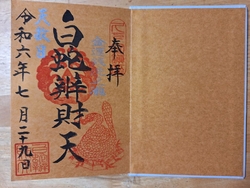 奉拝
白蛇辨財天
令和六年七月二十九日